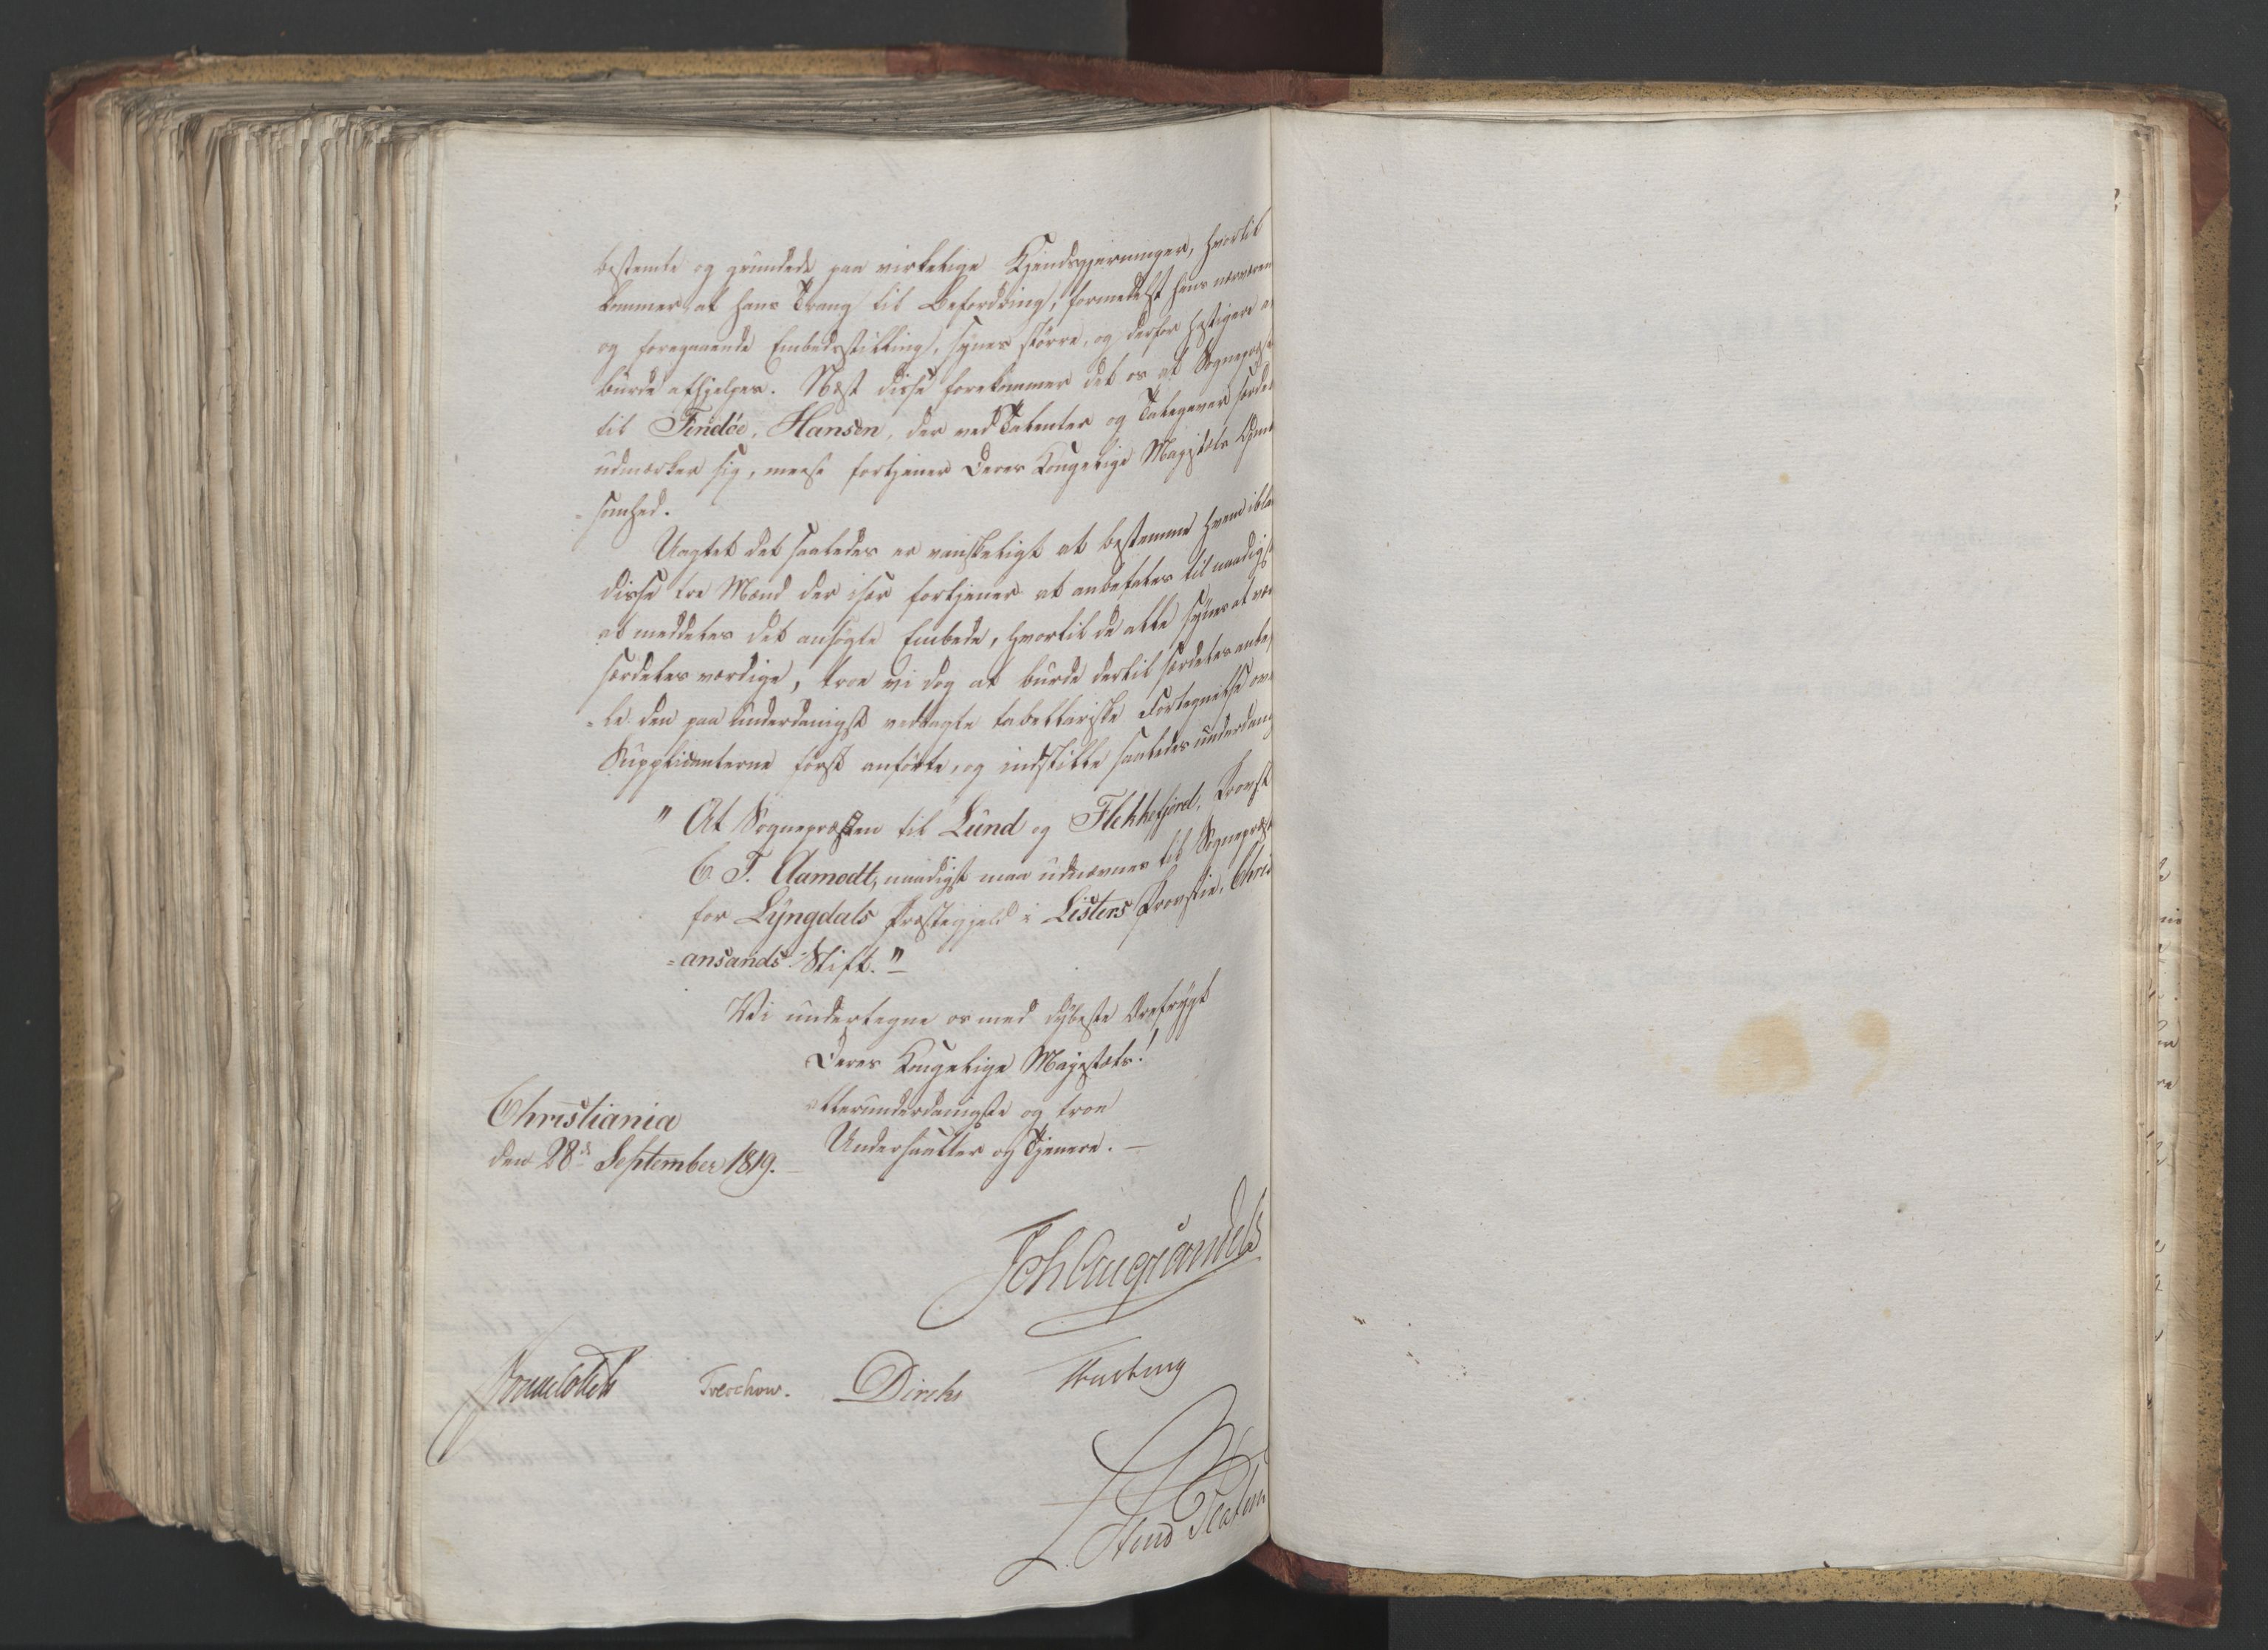 bestemte og grundede paa virkelige Kjendsgjerninger, hvortil
kommer at hans Trang til Befordring, formedelst hans nærværen
og foregaaende Embedsstilling, synes større, og derfor hastigere
burde afhjelpes. Næst disse forekommer det os at Sognepræst
til Findöe, Hansen, der ved Talenter og Talegaver særde
udmærker sig, meest fortjener Deres Kongelige Majestæts Opmærk
=somhed.
Uagtet det saaledes er vanskeligt at bestemme hvem ibla
disse tre Mænd der især fortjener at anbefales til naadigst
at meddeles det ansøgte Embede, hvortil de alle synes at vær
særdeles værdige, troe vi dog at burde dertil særdeles anbe
=le den paa underdanigst vedlagte tabellariske Fortegnelse ov
Supplicanterne først anførte, og indstille saaledes underdani
" At Sognepræsten til Lund og Flekkefjord, Provst
C. T. Aamodt, naadigst maa udnævnes til Sognepræst
for Lyngdals Præstegjeld i Listers Provstie, Chris
=ansands Stift."
Vi undertegne os med dybeste Ærefrygt
Deres Kongelige Majestæts!
allerunderdanigste og troe
Undersaatter og Tjenere. —
Christiania
den 28de September 1819. —
Joh Aug Sandels
Sommerhielm Treschow. Diriks Fasting
L. Stud Platou